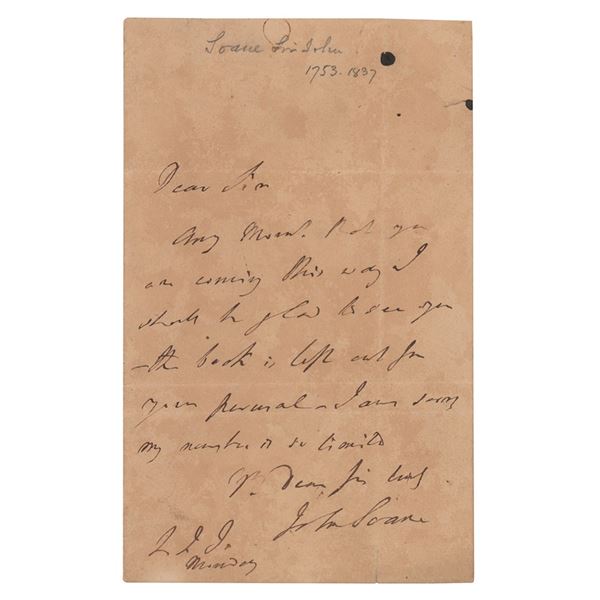 Soane Sir John
1753-1837
Dear Sir
Any Morn.g that you
are coming this way I
shall be glad to see you
– the book is left out for
your perusal – I am sorry
my number is so limited
Yr. Dear Sir truly
John Soane
L I F
Monday